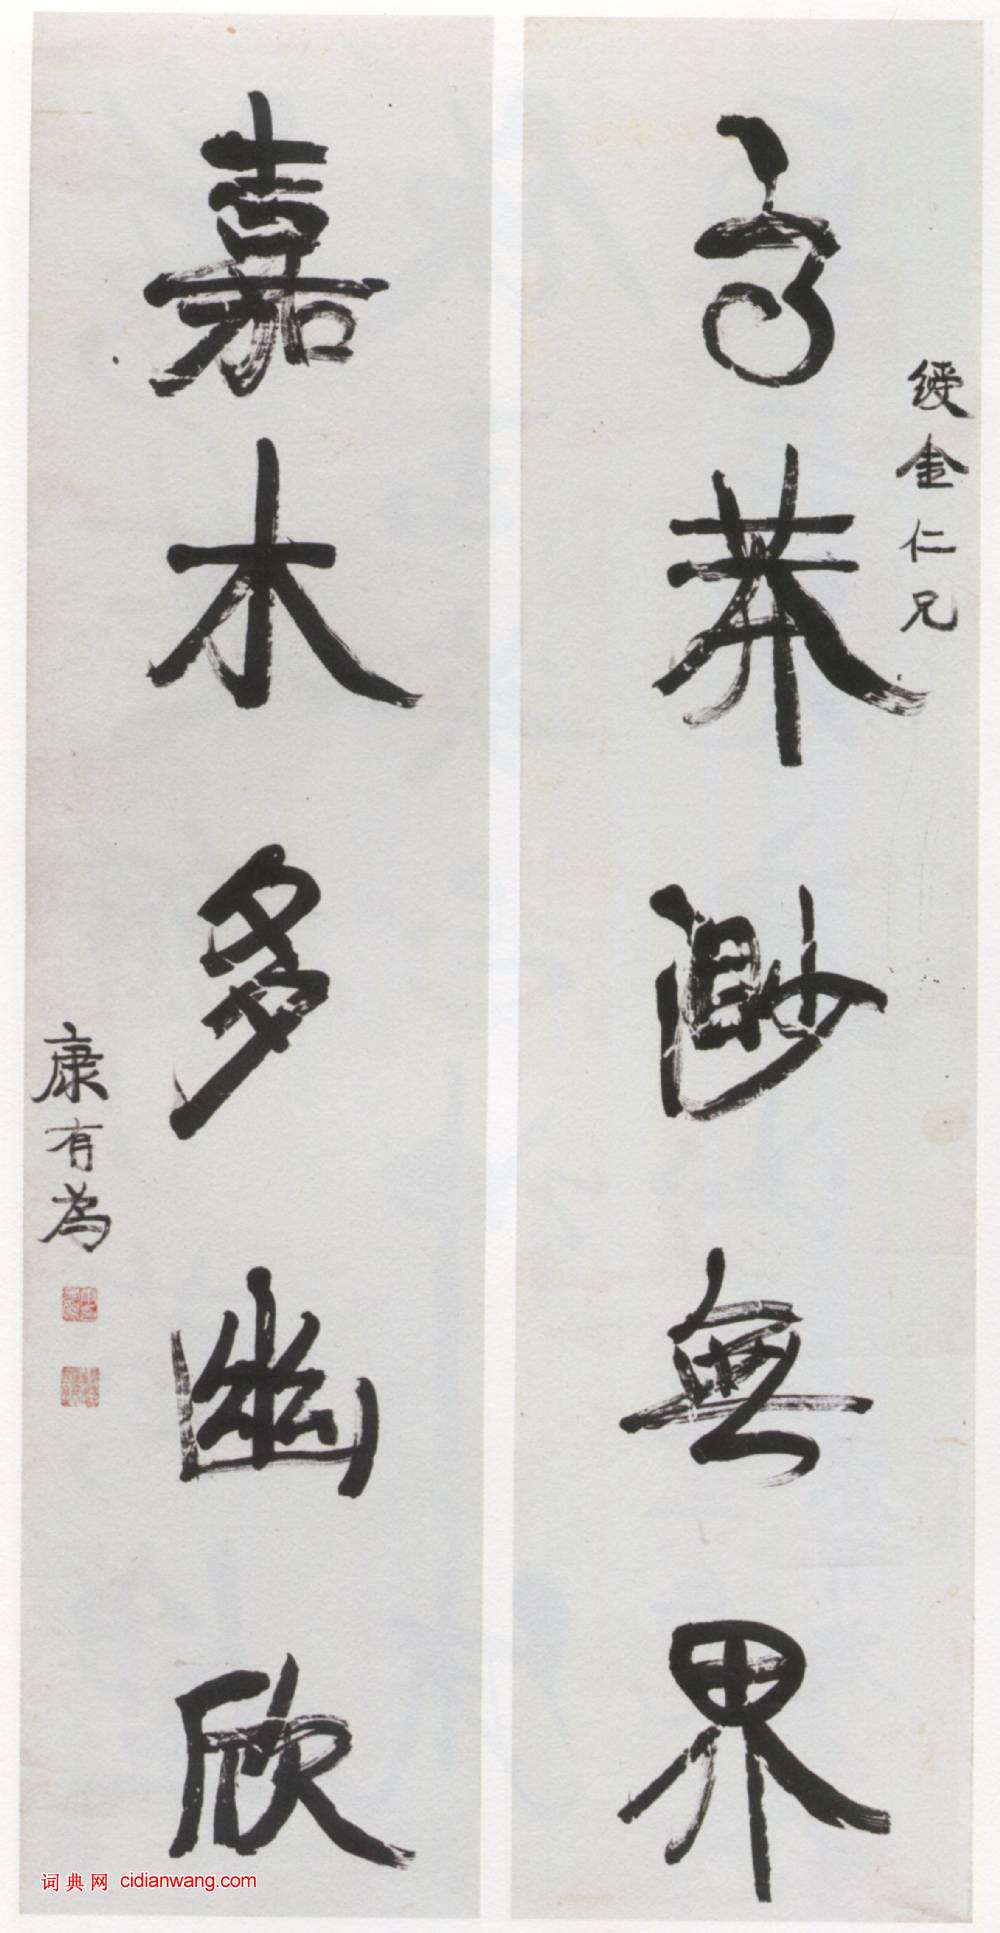 高莽渺無界
綬金仁兄
嘉木多幽欣
康有為
词典网 cidianwang.com